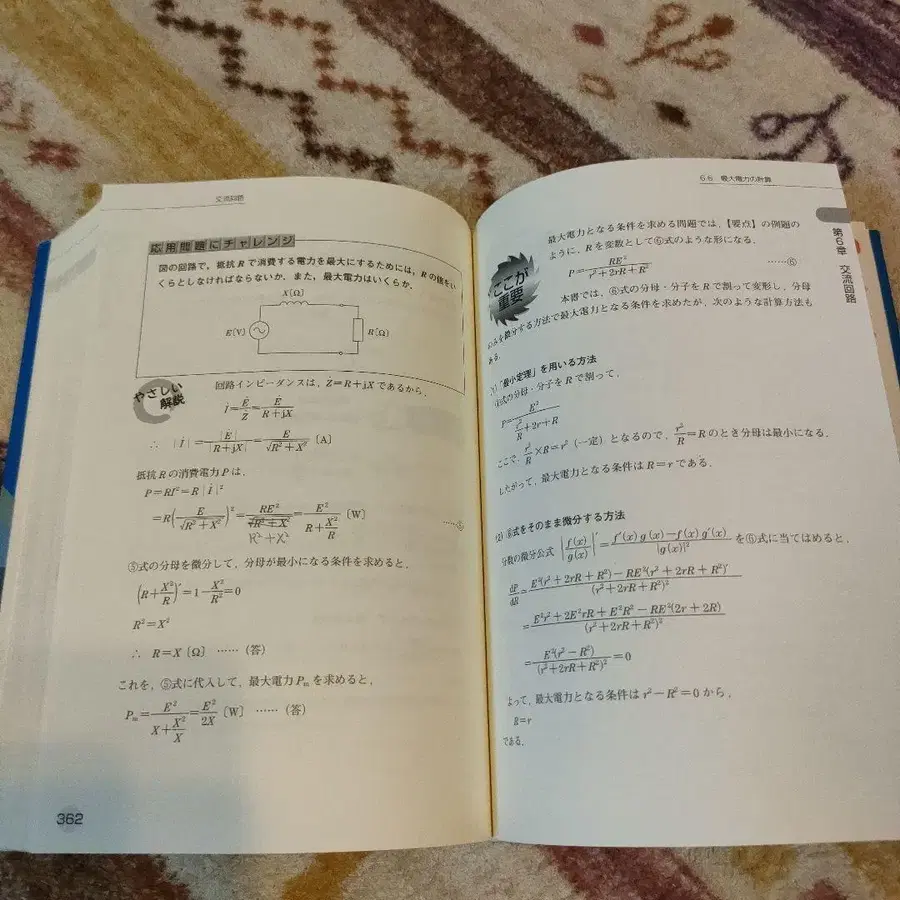 交流回路
応用問題にチャレンジ
図の回路で，抵抗Rで消費する電力を最大にするためには，Rの値をい
くらとしなければならないか．また，最大電力はいくらか．
X〔Ω〕
E〔V〕
R〔Ω〕
やさしい
解説
回路インピーダンスは，Ż=R+jXであるから，
İ=Ė/Ż=Ė/(R+jX)
∴ |İ|=|Ė|/|R+jX|=E/√(R²+X²)〔A〕
抵抗Rの消費電力Pは，
P=RI²=R|İ|²
=R(E/√(R²+X²))²=RE²/√(R²+X²)=E²/(R+X²/R)〔W〕 ……⑤
R²+X²
⑤式の分母を微分して，分母が最小になる条件を求めると，
(R+X²/R)′=1−X²/R²=0
R²=X²
∴ R=X〔Ω〕 ……（答）
これを，⑤式に代入して，最大電力Pₘを求めると，
Pₘ=E²/(X+X²/X)=E²/2X〔W〕 ……（答）
362
6.6 最大電力の計算
第6章 交流回路
ここが
重要
最大電力となる条件を求める問題では，【要点】の例題の
ように，Rを変数として⑥式のような形になる．
P=RE²/(r²+2rR+R²) ……⑥
本書では，⑥式の分母・分子をRで割って変形し，分母
のみを微分する方法で最大電力となる条件を求めたが，次のような計算方法も
ある．
(1)「最小定理」を用いる方法
⑥式の分母・分子をRで割って，
P=E²/(r²/R+2r+R)
ここで，r²/R×R=r²（一定）となるので，r²/R=Rのとき分母は最小になる．
したがって，最大電力となる条件はR=rである．
(2) ⑥式をそのまま微分する方法
分数の微分公式 {f(x)/g(x)}′=(f′(x)g(x)−f(x)g′(x))/{g(x)}² を⑥式に当てはめると，
dP/dR=(E²(r²+2rR+R²)−RE²(r²+2rR+R²)′)/(r²+2rR+R²)²
=(E²r²+2E²rR+E²R²−RE²(2r+2R))/(r²+2rR+R²)²
=E²(r²−R²)/(r²+2rR+R²)²=0
よって，最大電力となる条件はr²−R²=0から，
R=r
である．